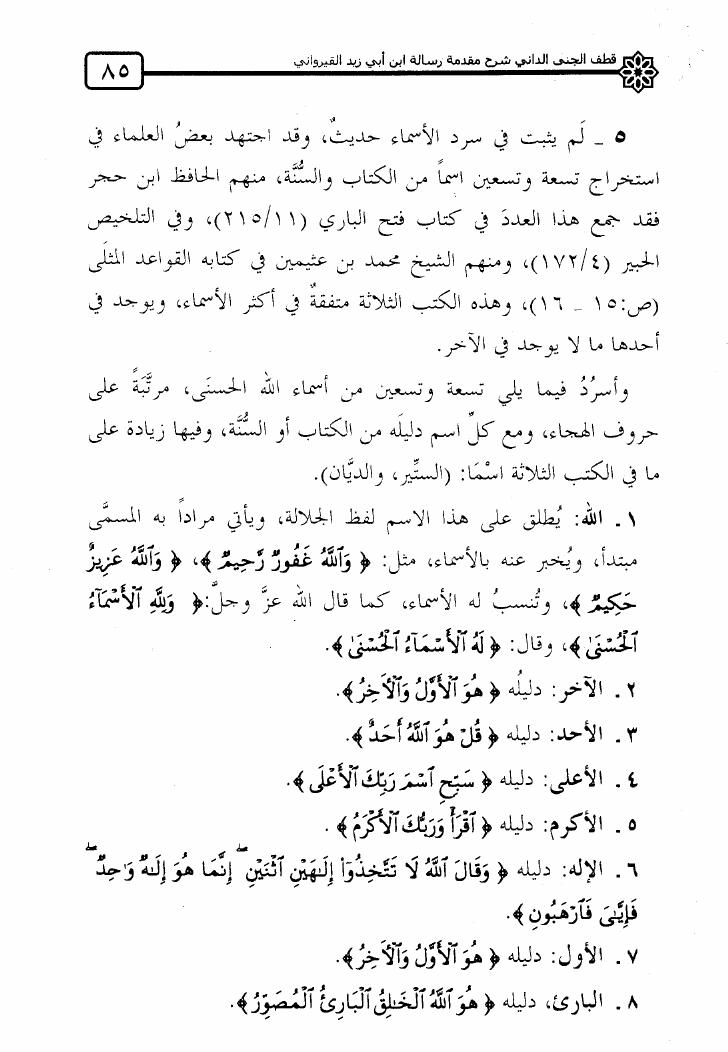 قطف الجنى الداني شرح مقدمة رسالة ابن أبي زيد القيرواني
٨٥
٥ ـ لَم يثبت في سرد الأسماء حديثٌ، وقد اجتهد بعضُ العلماء في
استخراج تسعة وتسعين اسماً من الكتاب والسُّنَّة، منهم الحافظ ابن حجر
فقد جمع هذا العددَ في كتاب فتح الباري (٢١٥/١١)، وفي التلخيص
الحبير (١٧٢/٤)، ومنهم الشيخ محمد بن عثيمين في كتابه القواعد المثلَى
(ص:١٥ ـ ١٦)، وهذه الكتب الثلاثة متفقةٌ في أكثر الأسماء، ويوجد في
أحدها ما لا يوجد في الآخر.
وأسرُدُ فيما يلي تسعة وتسعين من أسماء الله الحسنَى، مرتَّبَةً على
حروف الهجاء، ومع كلِّ اسم دليلَه من الكتاب أو السُّنَّة، وفيها زيادة على
ما في الكتب الثلاثة اسْمَا: (الستِّير، والديَّان).
١. الله: يُطلق على هذا الاسم لفظ الجلالة، ويأتي مراداً به المسمَّى
مبتدأ، ويُخبر عنه بالأسماء، مثل: ﴿ وَٱللَّهُ غَفُورٌ رَّحِيمٌ ﴾، ﴿ وَٱللَّهُ عَزِيزٌ
حَكِيمٌ ﴾، وتُنسبُ له الأسماء، كما قال الله عزَّ وجلَّ:﴿ وَلِلَّهِ ٱلْأَسْمَآءُ
ٱلْحُسْنَىٰ ﴾، وقال: ﴿ لَهُ ٱلْأَسْمَآءُ ٱلْحُسْنَىٰ ﴾.
٢. الآخر: دليلُه ﴿ هُوَ ٱلْأَوَّلُ وَٱلْأَخِرُ ﴾.
٣. الأحد: دليله ﴿ قُلْ هُوَ ٱللَّهُ أَحَدٌ ﴾.
٤. الأعلى: دليله ﴿ سَبِّحِ ٱسْمَ رَبِّكَ ٱلْأَعْلَى ﴾.
٥. الأكرم: دليله ﴿ ٱقْرَأْ وَرَبُّكَ ٱلْأَكْرَمُ ﴾ .
٦. الإله: دليله ﴿ وَقَالَ ٱللَّهُ لَا تَتَّخِذُوٓاْ إِلَـٰهَيْنِ ٱثْنَيْنِ ۖ إِنَّمَا هُوَ إِلَـٰهٌ وَٰحِدٌ ۖ
فَإِيَّـٰىَ فَٱرْهَبُونِ ﴾.
٧. الأول: دليله ﴿ هُوَ ٱلْأَوَّلُ وَٱلْأَخِرُ ﴾.
٨. البارئ، دليله ﴿ هُوَ ٱللَّهُ ٱلْخَـٰلِقُ ٱلْبَارِئُ ٱلْمُصَوِّرُ ﴾.